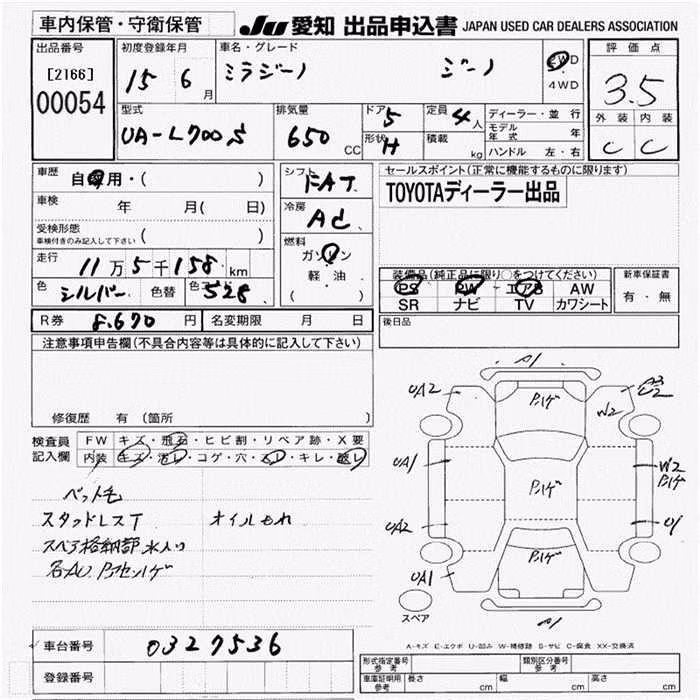 車内保管・守衛保管
JU 愛知 出品申込書 JAPAN USED CAR DEALERS ASSOCIATION
出品番号
[2166]
00054
初度登録年月
15 6 月
車名・グレード
ミラジーノ ジーノ
2WD
4WD
評価点
3.5
外装 内装
C C
型式
UA-L700S
排気量
650 CC
ドア 5
形状 H
定員 4人
積載 kg
ディーラー・並行
モデル年式 年
ハンドル 左・右
車歴
自家用・( )
車検 年 月( 日)
受検形態
車検付きのみ記入して下さい ( )
走行 11万5千158 km
色 シルバー 色替 色コード S28
シフト FAT
冷房 AC
燃料
ガソリン
軽・油
( )
セールスポイント(正常に機能するものに限ります)
TOYOTAディーラー出品
装備品(純正品に限り○をつけてください)
PS PW エアB AW
SR ナビ TV カワシート
新車保証書
有・無
後日品
R券 8.670 円 名変期限 月 日
注意事項申告欄(不具合内容等は具体的に記入して下さい)
修復歴 有 (箇所
検査員
記入欄
FW キズ・飛石・ヒビ割・リペア跡・X要
内装 キズ・汚レ・コゲ・穴・スレ・キレ・破レ
ペット毛
スタッドレスT オイルもれ
スペア格納部水入り
A1
UA2
UA1
UA2
UA1
Pハゲ
Pハゲ
Pハゲ
A3
U2
W2
W2
Pハゲ
U1
A1
スペア
A-キズ E-エクボ U-凹み W-補修跡 S-サビ C-腐食 XX-交換済
車台番号 0327536
登録番号
形式指定番号
参考
類別区分番号
参考
車庫証明用
参考
長さ cm 幅 cm 高さ cm